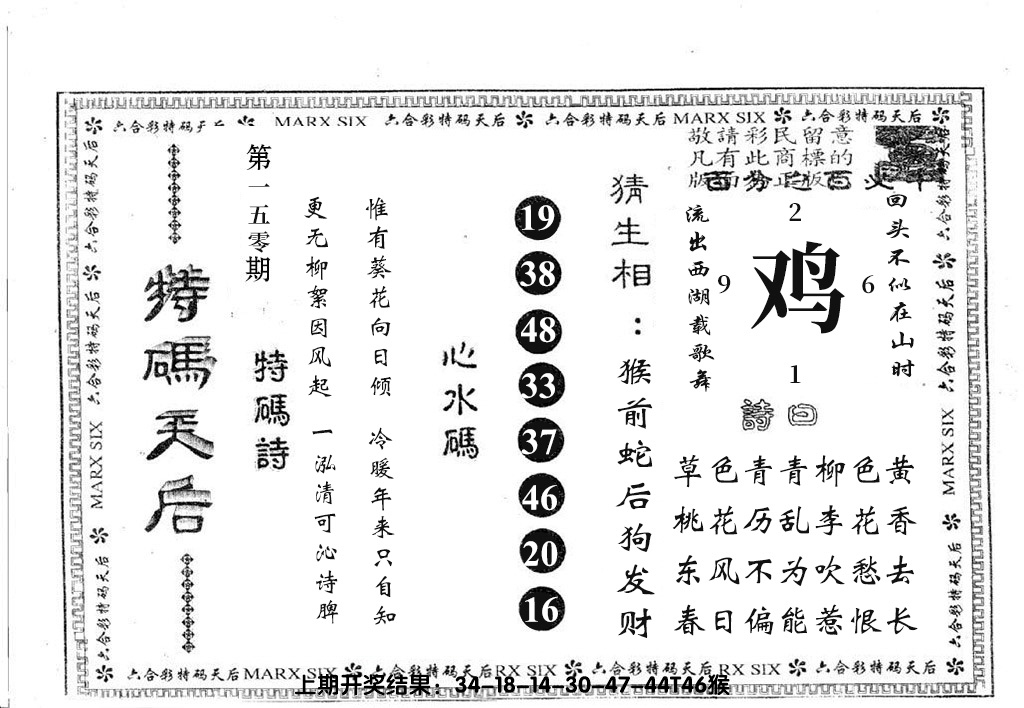 六合彩特码天后 MARX SIX 六合彩特码天后 六合彩特码天后 MARX SIX 六合彩特码天后
敬請彩民留意
凡有此商標的
特碼天后
第一五零期
特碼詩
惟有葵花向日倾 冷暖年来只自知
更无柳絮因风起 一泓清可沁诗脾
心水碼
19
38
48
33
37
46
20
16
猜生相：猴前蛇后狗发财
回头不似在山时
流出西湖载歌舞
2
9
鸡
6
1
詩曰
黄香去长
色花愁恨
柳李吹惹
青乱为能
青历不偏
色花风日
草桃东春
六合彩特码天后 MARX SIX 六合彩特码天后
六合彩特码天后 MARX SIX 六合彩特码天后
六合彩特码天后 MARX SIX 六合彩特码天后 RX SIX 六合彩特码天后 RX SIX 六合彩特码天后
上期开奖结果：34-18-14-30-47-44T46猴